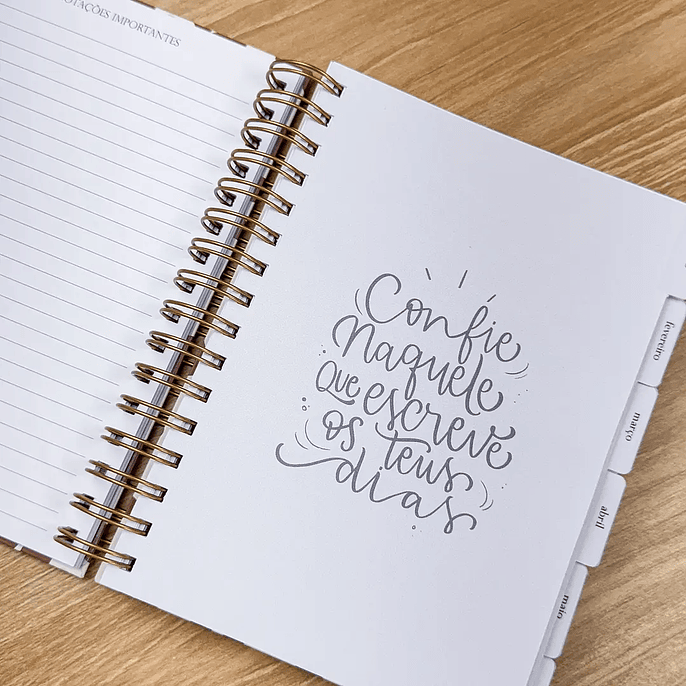 ANOTAÇÕES IMPORTANTES
Confie
Naquele
Que escreve
os teus
dias
fevereiro
março
abril
maio